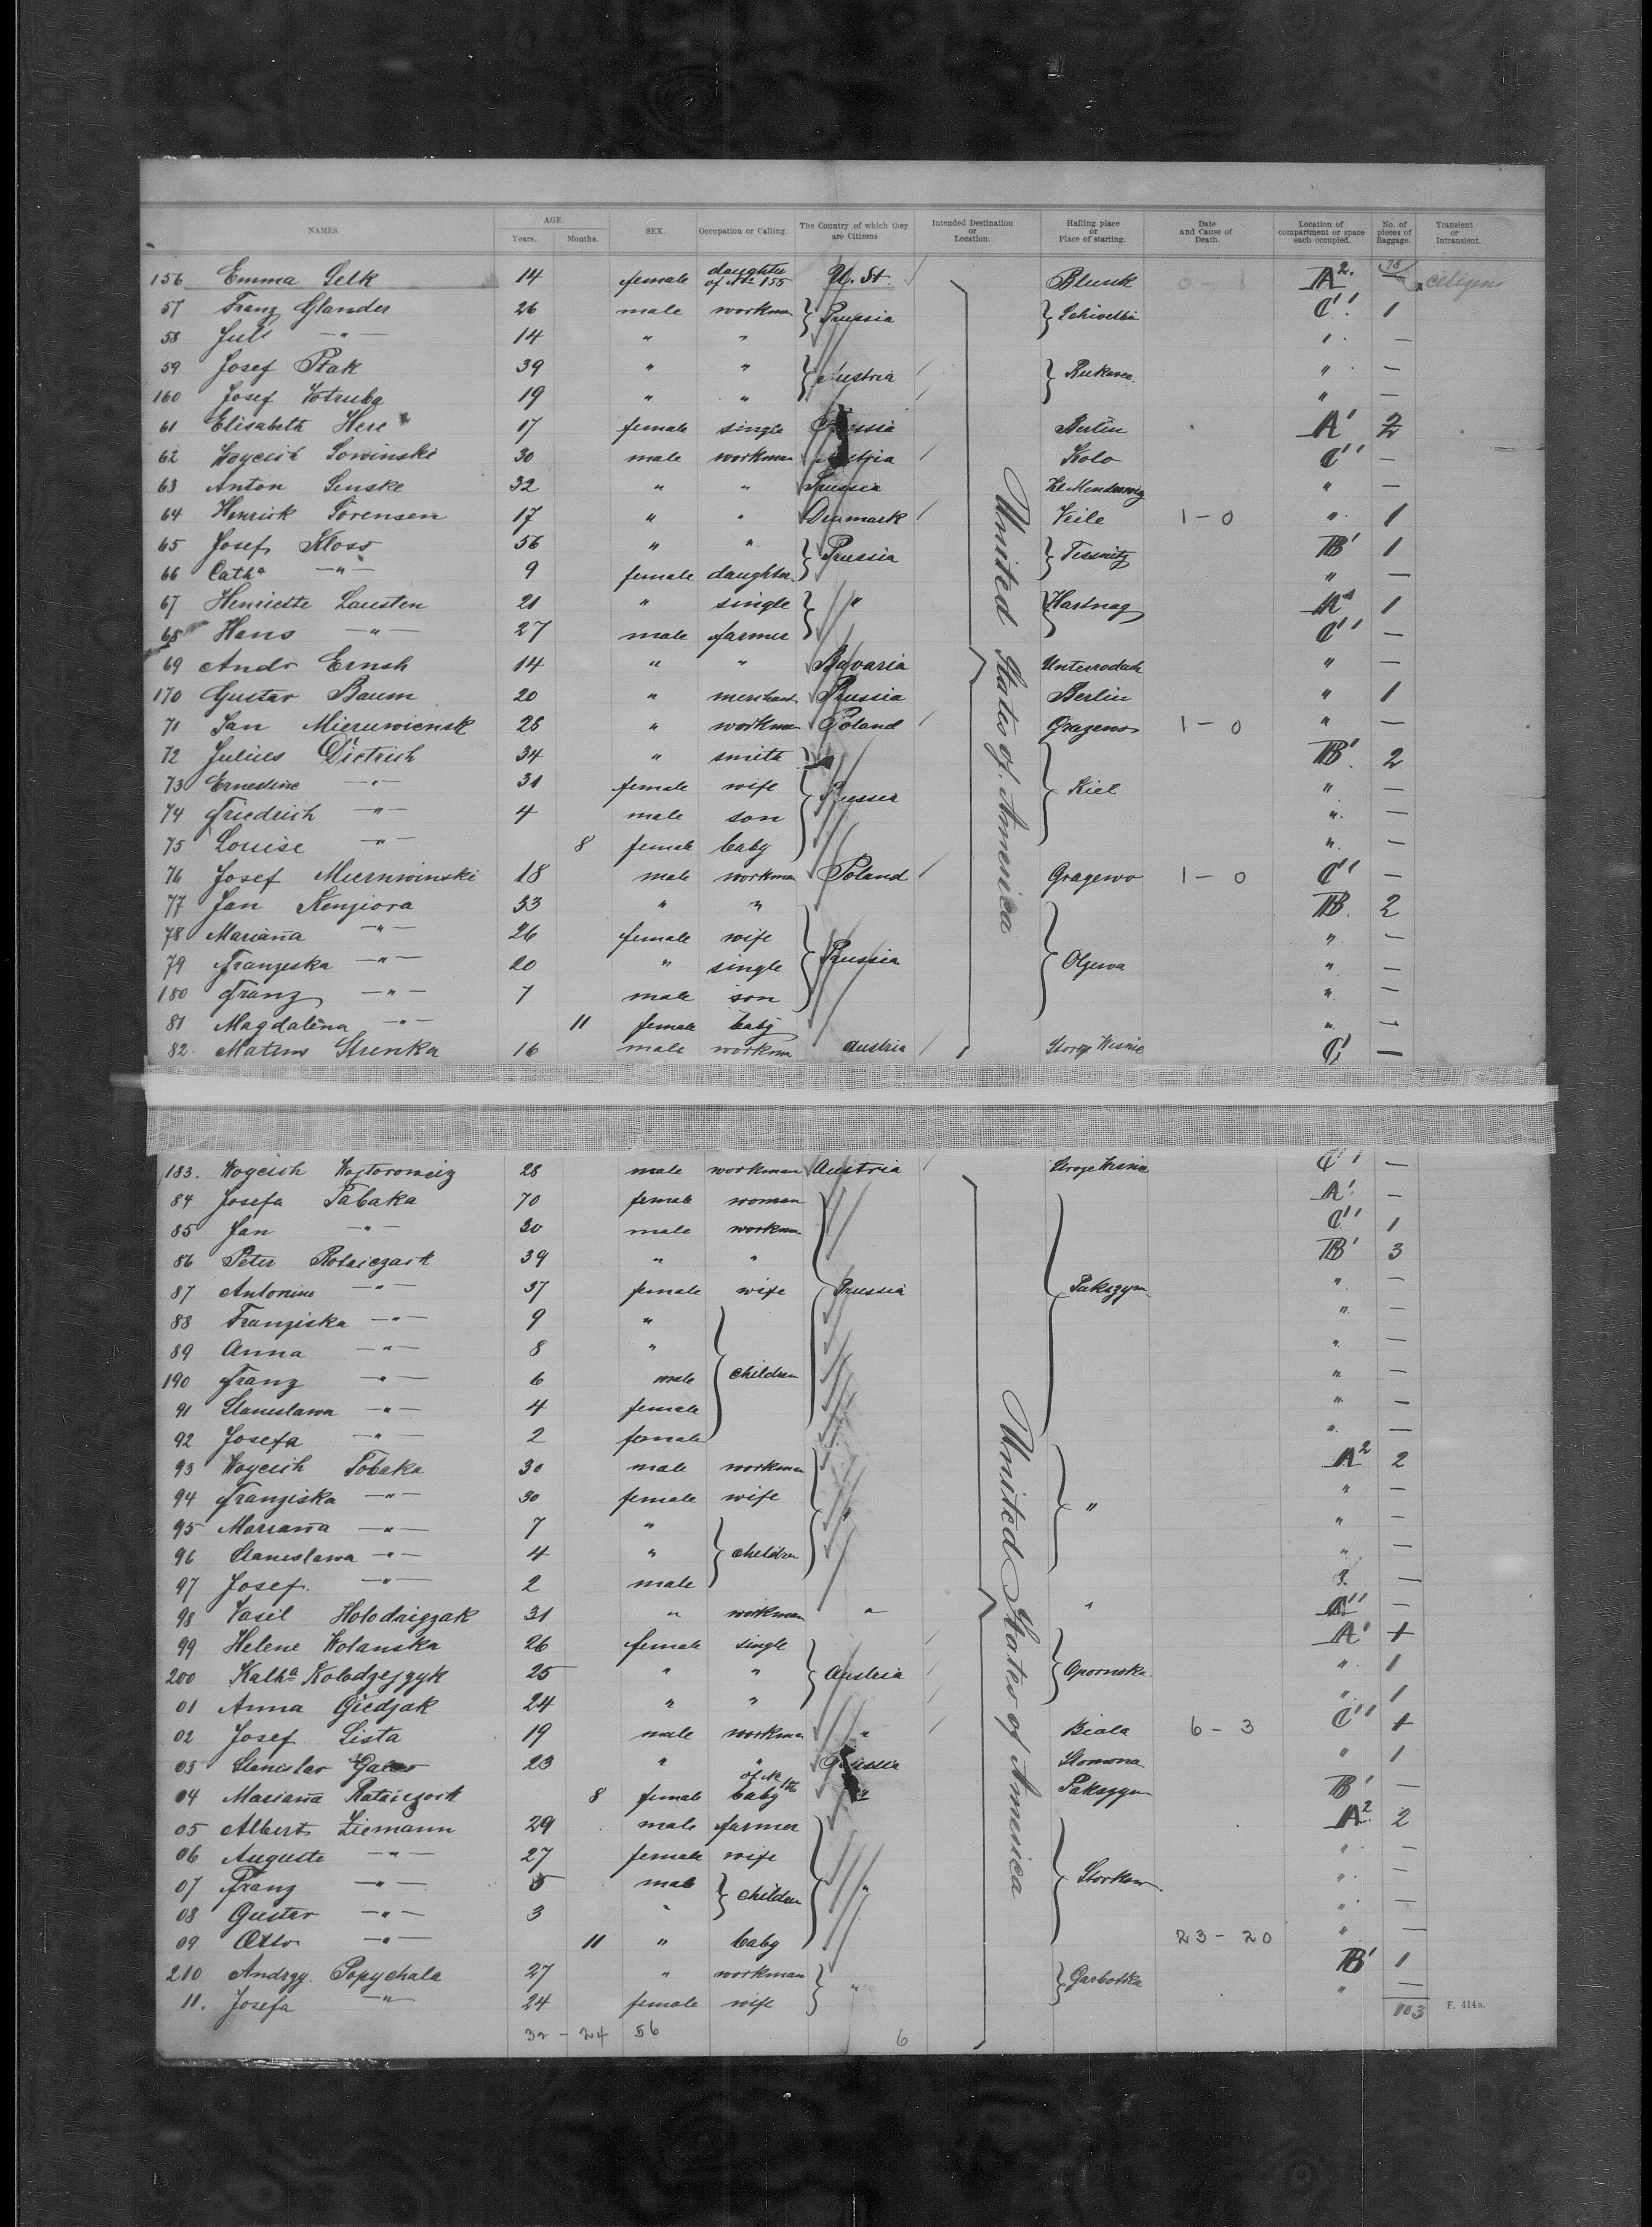 NAMES. AGE. Years. Months. SEX. Occupation or Calling. The Country of which they are Citizens Intended Destination or Location. Hailing place or Place of starting. Date and Cause of Death. Location of compartment or space each occupied. No. of pieces of Baggage. Transient or Intransient.
156 Emma Selk 14 female daughter of No 155 U. St. Blunk 0 - 1 A2. citizens
57 Franz Glander 26 male workman Prussia C'' 1
58 Jul 14 " " " —
59 Josef Ptak 39 " " Austria " —
160 Josef Votruba 19 " " " —
61 Elisabeth Here 17 female single Prussia Berlin A' 2
62 Woycich Sowinski 30 male workman Austria Kolo C'' —
63 Anton Senske 32 " " Prussia " —
64 Henrick Sörensen 17 " " Denmark Veile 1 - 0 " 1
65 Josef Kloss 56 " " Prussia Tessnitz B' 1
66 Catha —"— 9 female daughter " —
67 Henriette Lausten 21 " single " Hartnag A' 1
68 Hans —"— 27 male farmer C'' —
69 Andr Ernsh 14 " " Bavaria Unterrodach " —
170 Gustav Baum 20 " merchant Prussia Berlin " 1
71 Jan Mieruwiensk 28 " workman Poland Gragewo 1 - 0 " —
72 Julius Dietrich 34 " smith B' 2
73 Ernestine —"— 31 female wife Kiel " —
74 Friedrich —"— 4 male son " —
75 Louise —"— 8 female baby " —
76 Josef Miernwinski 18 male workman Poland Gragewo 1 - 0 C'' —
77 Jan Kenziora 33 " " B. 2
78 Marianna —"— 26 female wife " —
79 Franzeska —"— 20 " single Prussia Olzewa " —
180 Franz —"— 7 male son " —
81 Magdalena —"— 11 female baby " —
82. Strenka 16 male workman Austria C' —
United States of America
183. Woycich 28 male workman Austria C'' —
84 Josefa Tabaka 70 female woman A' —
85 Jan —"— 30 male workman C'' 1
86 Peter Rataiczack 39 " " B' 3
87 Antonine —"— 37 female wife Prussia Pakszyn " —
88 Franziska —"— 9 " " —
89 Anna —"— 8 " " —
190 Franz —"— 6 male children " —
91 Stanislawa —"— 4 female " —
92 Josefa —"— 2 female " —
93 Woycich Tobaka 30 male workman A2 2
94 Franziska —"— 30 female wife " " " —
95 Marianna —"— 7 " " —
96 Stanislawa —"— 4 " children " —
97 Josef —"— 2 male —
98 Vasil Holodnigzak 31 " workman " " —
99 Helene Wolanska 26 female single A' +
200 Katha Kolodzejzyk 25 " " Austria Opornska " 1
01 Anna Giedjak 24 " " " 1
02 Josef Lista 19 male workman " Biala 6 - 3 C'' +
03 Stanislav 23 " " Prussia Slomona " 1
04 Marianna Rataiczack 8 female baby of No 186 " Pakszyn B' —
05 Albert Ziemann 29 male farmer A2 2
06 Auguste —"— 27 female wife " —
07 Franz —"— 5 male children " Storkow " —
08 Gustav —"— 3 " " —
09 Otto —"— 11 " baby 23 - 20 " —
210 Andrzy. Popychala 27 " workman " Garbotka B' 1
11. Josefa —"— 24 female wife " —
United States of America
103 F. 414a.
32 - 24 56 6